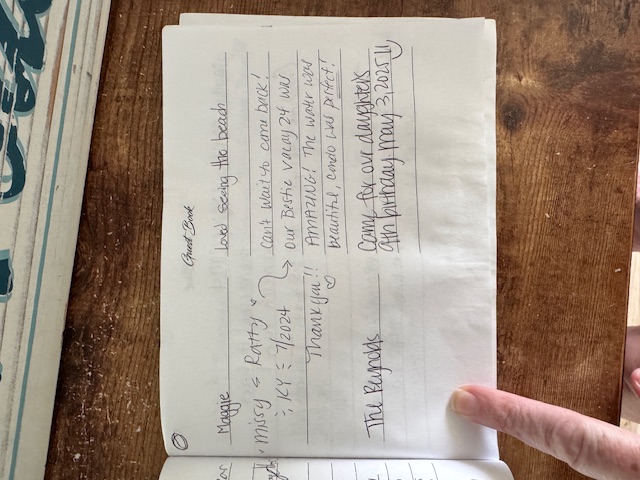 Guest Book
Maggie Loved seeing the beach
Missy & Katty can't wait to come back!
KY 7/2024 → our Bestie vacay 24 was
Thank you!! AMAZING! The water was
♡ beautiful, condo was perfect!
The Reynolds Came for our daughters
9th birthday May 3, 2025!!